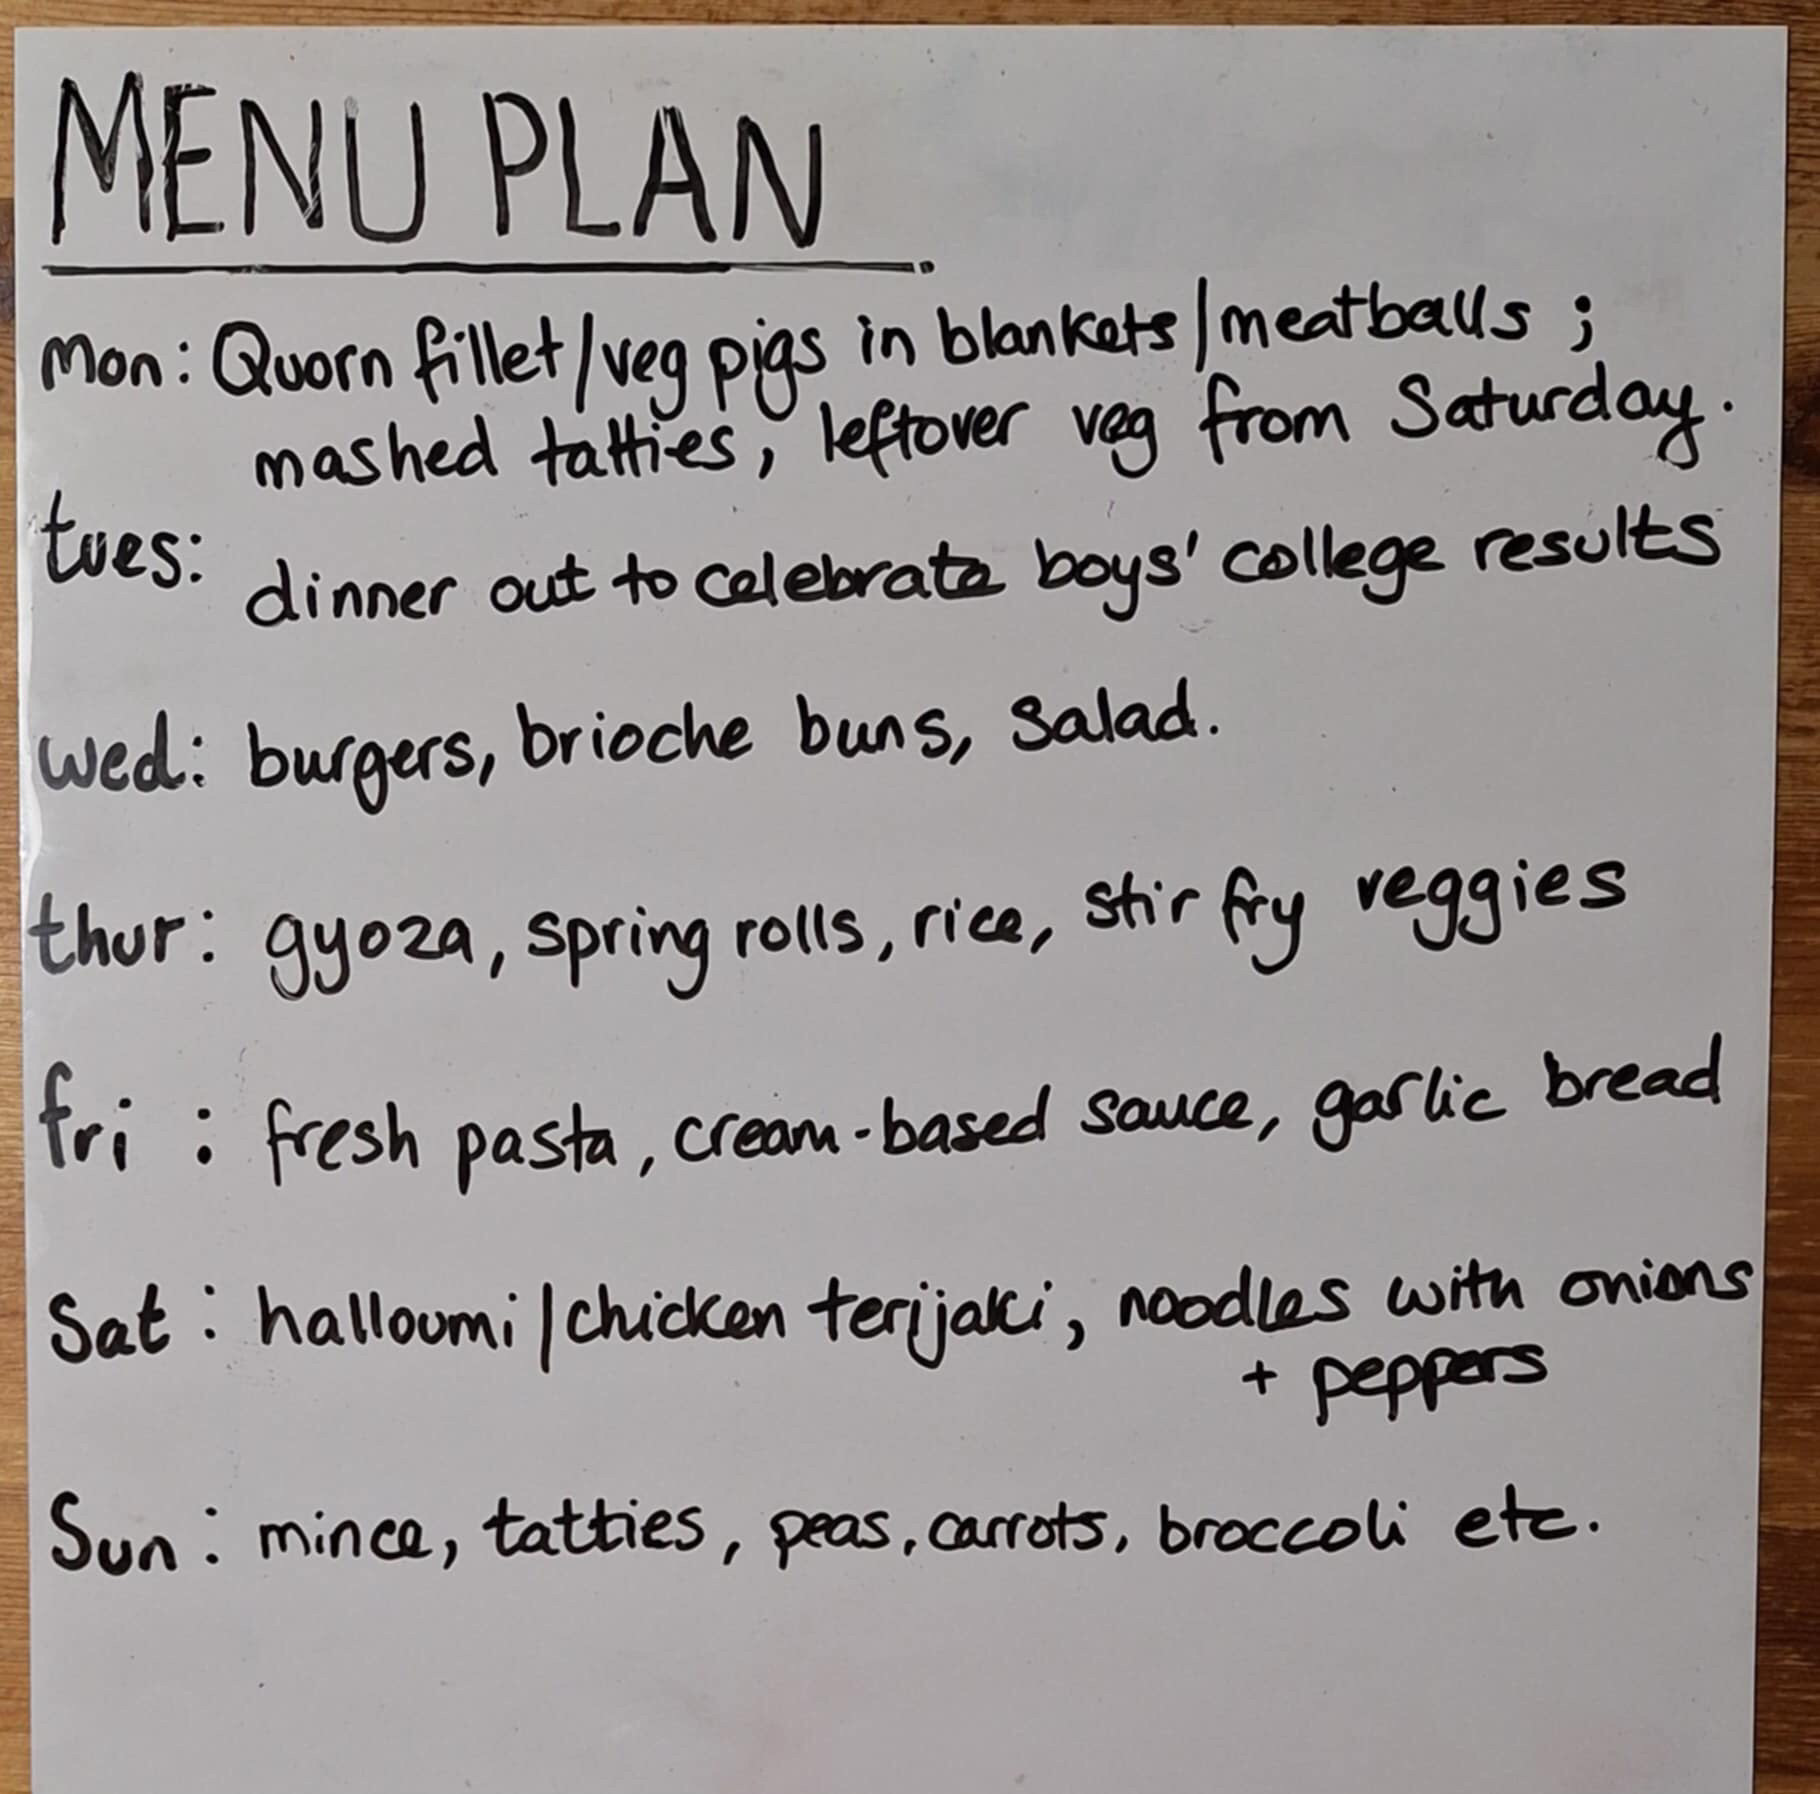 MENU PLAN
Mon: Quorn fillet/veg pigs in blankets/meatballs;
mashed tatties, leftover veg from Saturday.
tues:
dinner out to celebrate boys' college results
wed: burgers, brioche buns, salad.
thur: gyoza, spring rolls, rice, stir fry veggies
fri: fresh pasta, cream-based sauce, garlic bread
Sat: halloumi/chicken terijaki, noodles with onions
+ peppers
Sun: mince, tatties, peas, carrots, broccoli etc.